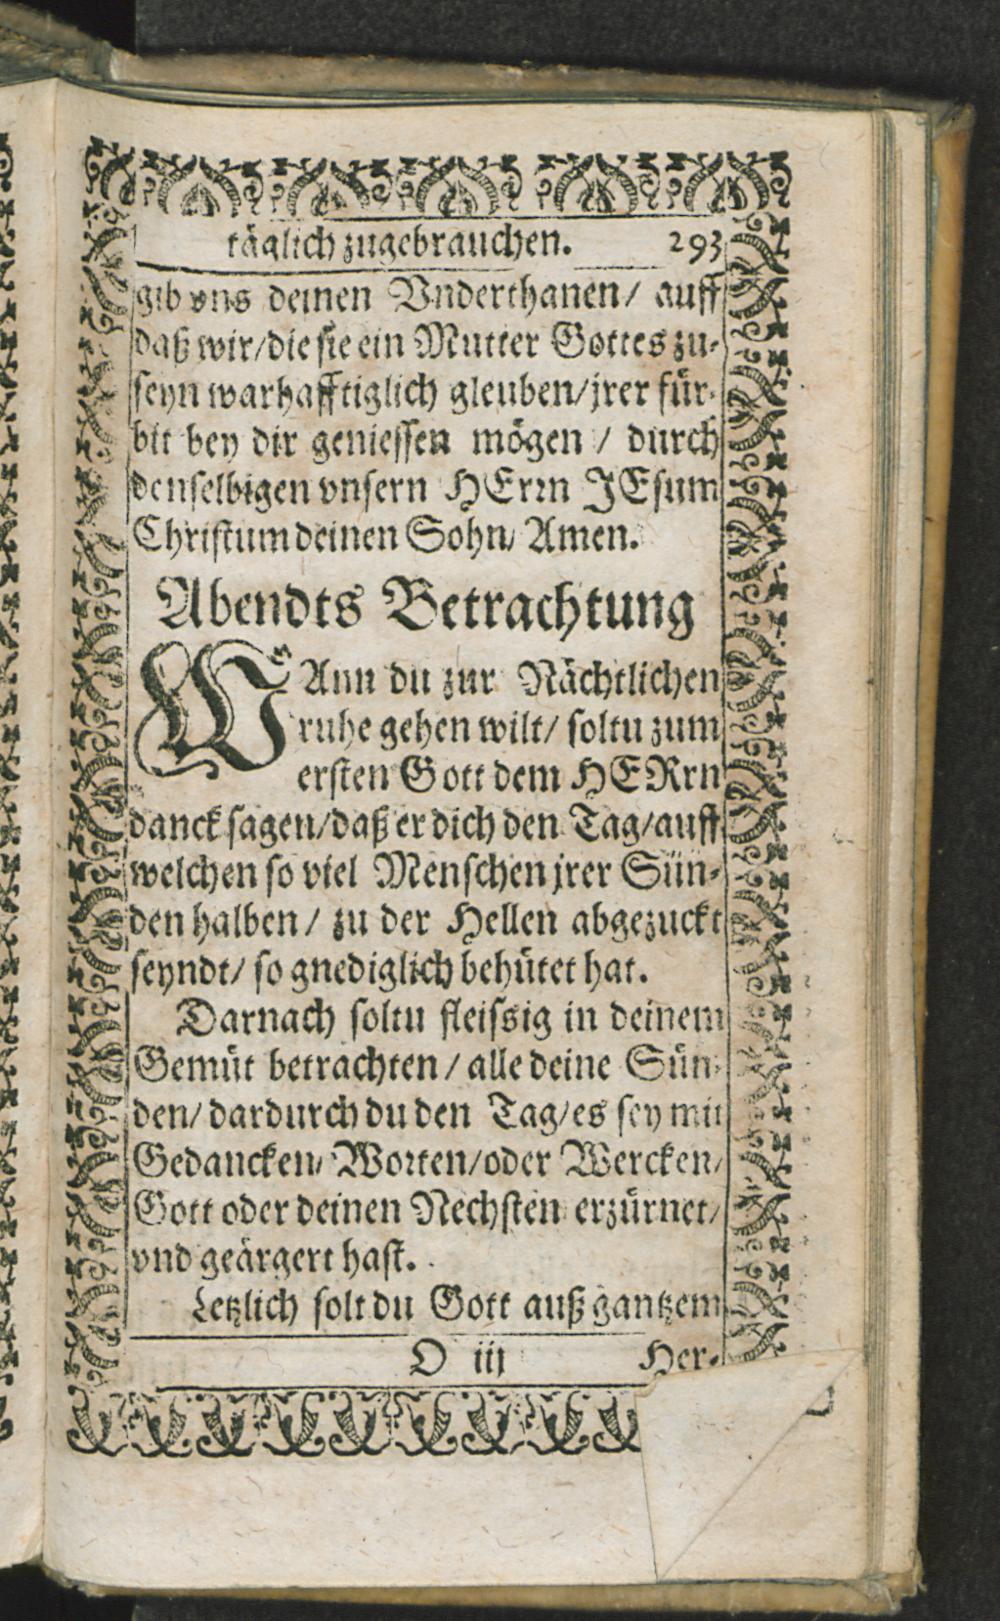 täglich zugebrauchen. 293
gib vns deinen Vnderthanen/ auff
daß wir/die sie ein Mutter Gottes zu-
seyn warhafftiglich gleuben/jrer für-
bit bey dir geniessen mögen / durch
denselbigen vnsern HErrn JEsum
Christum deinen Sohn/ Amen.
Abendts Betrachtung
WAnn du zur Nächtlichen
ruhe gehen wilt/ soltu zum
ersten Gott dem HERrn
danck sagen/daß er dich den Tag/auff
welchen so viel Menschen jrer Sün-
den halben/ zu der Hellen abgezuckt
seyndt/ so gnediglich behütet hat.
Darnach soltu fleissig in deinem
Gemüt betrachten/ alle deine Sün-
den/ dardurch du den Tag/es sey mit
Gedancken/ Worten/oder Wercken/
Gott oder deinen Nechsten erzürnet/
vnd geärgert hast.
Letzlich solt du Gott auß gantzem
O iij Her-